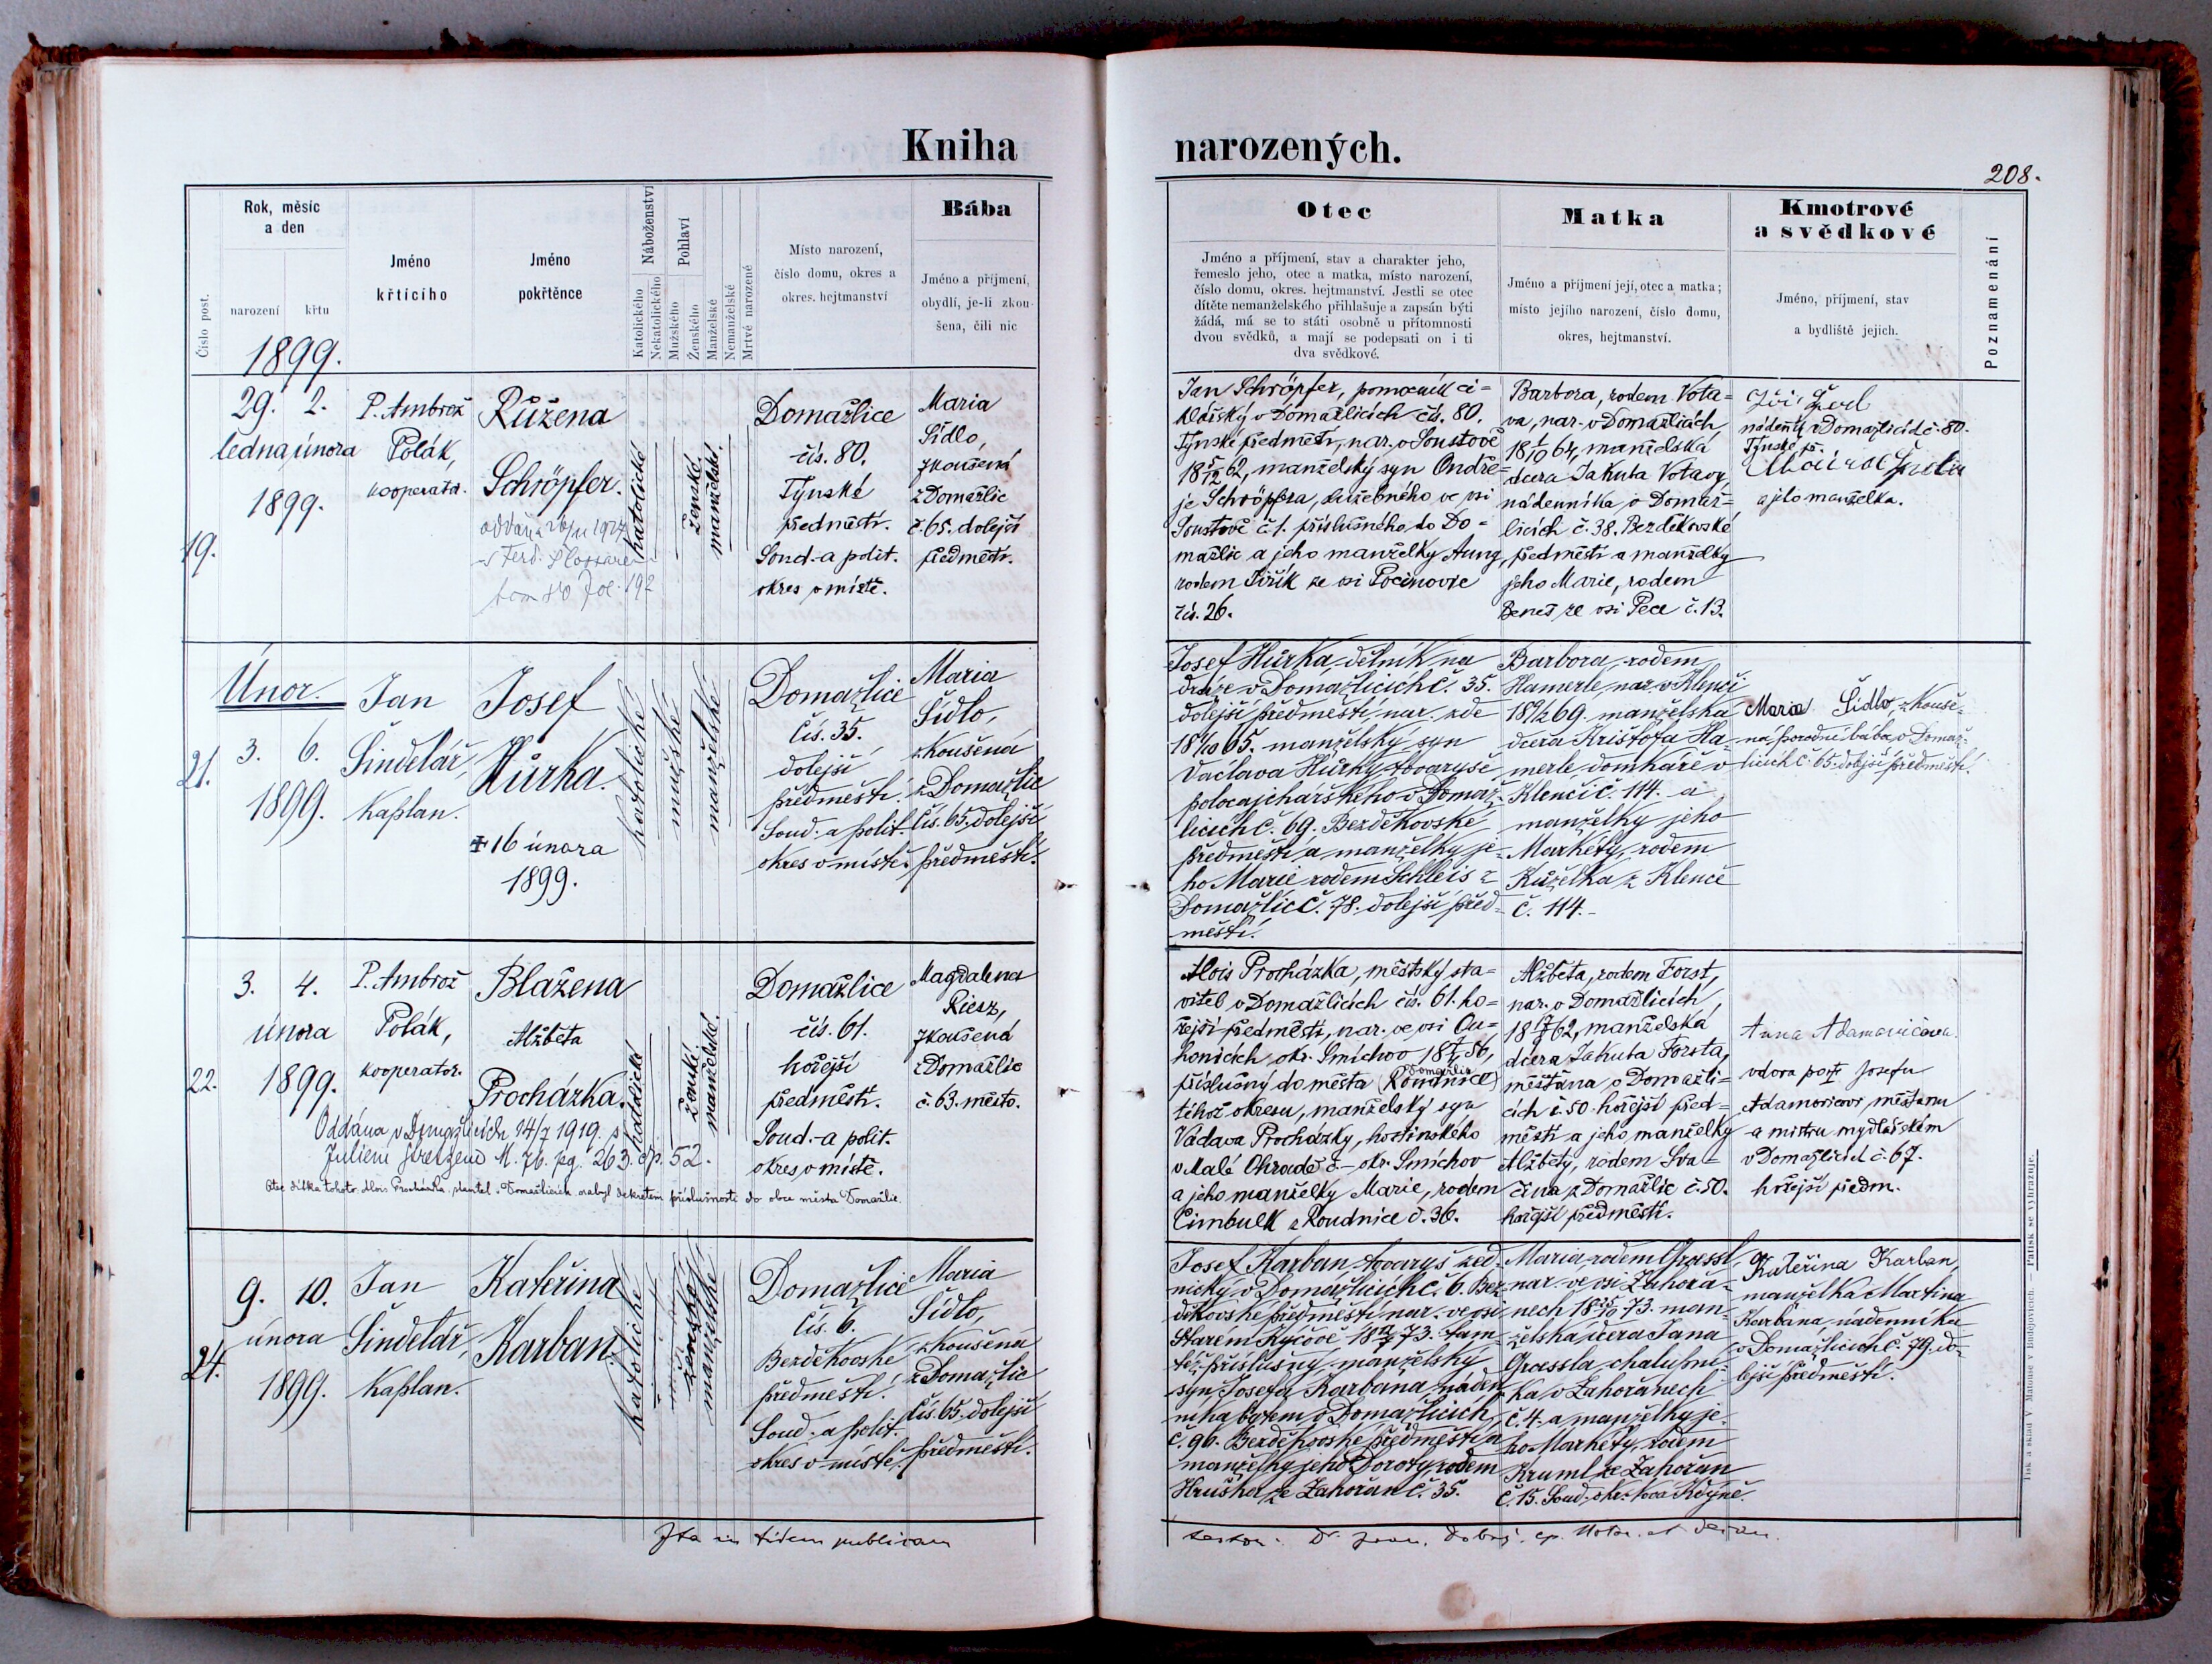 Kniha narozených.
208.
Číslo post.
Rok, měsíc
a den
narození
křtu
Jméno
křtícího
Jméno
pokřtěnce
Náboženství
Katolického
Nekatolického
Pohlaví
Mužského
Ženského
Manželské
Nemanželské
Mrtvě narozené
Místo narození,
číslo domu, okres a
okres. hejtmanství
Bába
Jméno a příjmení,
obydlí, je-li zkou-
šena, čili nic
Otec
Jméno a příjmení, stav a charakter jeho,
řemeslo jeho, otec a matka, místo narození,
číslo domu, okres. hejtmanství. Jestli se otec
dítěte nemanželského přihlašuje a zapsán býti
žádá, má se to státi osobně u přítomnosti
dvou svědků, a mají se podepsati on i ti
dva svědkové.
Matka
Jméno a příjmení její, otec a matka;
místo jejího narození, číslo domu,
okres, hejtmanství.
Kmotrové
a svědkové
Jméno, příjmení, stav
a bydliště jejich.
Poznamenání
1899.
19.
29. 2.
ledna února
1899.
P. Ambrož
Polák,
kooperator.
Růžena
Schröpfer.
katolické
ženské.
manželské.
Domažlice
čís. 80.
Týnské
předměstí.
Soud. a polit.
okres v místě.
Maria
Sídlo,
zkoušená
z Domažlic
č. 65. dolejší
předměstí.
Jan Schröpfer, pomocník ci-
hlářský v Domažlicích čís. 80.
Týnské předměstí, nar. v Soustově
18 5/12 62, manželský syn Ondře-
je Schröpfra, služebného ve vsi
Soustově č. 1. příslušného do Do-
mažlic a jeho manželky Anny,
rodem Jiřík ze vsi Pocinovic
čís. 26.
Barbora, rodem Vota-
va, nar. v Domažlicích
18 1/10 64, manželská
dcera Jakuba Votavy,
nádenníka v Domaž-
licích č. 38. Bezděkovské
předměstí a manželky
jeho Marie, rodem
Beneš ze vsi Pece č. 13.
v Domažlicích č. 80.
Týnské př.
a jeho manželka.
21.
Únor.
3. 6.
1899.
Jan
Šindelář,
kaplan.
Josef
Hůrka.
✝ 16 února
1899.
katolické
mužské
manželské
Domažlice
Čís. 35.
dolejší
předměstí.
Soud. a polit.
okres v místě.
Maria
Sídlo,
zkoušená
z Domažlic
čís. 65, dolejší
předměstí.
Josef Hůrka, dělník na
dráze v Domažlicích č. 35.
dolejší předměstí, nar. zde
18 1/10 65. manželský syn
Václava Hůrky, tovaryše
v Domaž-
licích č. 69. Bezděkovské
předměstí a manželky je-
ho Marie rodem Schleis z
Domažlic č. 78. dolejší před-
městí.
Barbora, rodem
Hamerle, nar. v Klenčí
69. manželská
dcera Kristofa Ha-
merle domkáře v
Klenčí č. 114. a
manželky jeho
Markéty, rodem
Kuželka z Klenče
č. 114.-
Maria Šídlo, zkouše-
ná porodní bába v Domaž-
licích č. 65. dolejší předměstí.
22.
3. 4.
února
1899.
P. Ambrož
Polák,
kooperator.
Blažena
Alžběta
Procházka.
katolické
ženské.
manželské.
Oddána v Domažlicích 14/7 1919. s
M. 76. pg. 263. čp. 52.
Otec dítka tohoto Alois Procházka, stavitel v Domažlicích nabyl dekretem příslušnosti do obce města Domažlic.
Domažlice
čís. 61.
hořejší
předměstí.
Soud. a polit.
okres v místě.
Magdalena
Riesz,
zkoušená
z Domažlic
č. 63. město.
Alois Procházka, městský sta-
vitel v Domažlicích čís. 61. ho-
řejší předměstí, nar. ve vsi Ou-
honicích okr. Smíchov 56,
Domažlic
příslušný do města (Roudnice)
téhož okresu, manželský syn
Václava Procházky, hostinského
v Malé Ohradě č. – okr. Smíchov
a jeho manželky Marie, rodem
Cimbulk z Roudnice č. 36.
Alžběta, rodem Forst,
nar. v Domažlicích
62, manželská
dcera Jakuba Forsta,
měšťana v Domažli-
cích č. 50. hořejší před-
městí a jeho manželky
Alžběty, rodem Sva-
čina z Domažlic č. 50.
hořejší předměstí.
Anna Adamovičova
vdova po † Josefu
Adamovičovi, měšťanu
a mistru mydlářském
v Domažlicích č. 67.
hořejší předm.
24.
9. 10.
února
1899.
Jan
Šindelář,
kaplan.
Kateřina
Karban.
katolické
ženské
manželské
Domažlice
Čís. 6.
Bezděkovské
předměstí.
Soud. a polit.
okres v místě.
Maria
Šídlo,
zkoušená
z Domažlic
čís. 65. dolejší
předměstí.
Josef Karban, tovaryš zed-
nický v Domažlicích č. 6. Bez-
děkovské předměstí, nar. ve vsi
Starém Kyčově 73. tam-
též příslušný, manželský
syn Josefa Karbana, náden-
níka bytem v Domažlicích
č. 96. Bezděkovské předměstí a
manželky jeho Doroty, rodem
Hruška ze Zahořan č. 35.
Maria, rodem Graessl,
nar. ve vsi Zahořa-
nech 73. man-
želská dcera Jana
Graessla, chalupní-
ka v Zahořanech
č. 4. a manželky je-
ho Markéty, rodem
Kruml ze Zahořan
č. 15. Soud. okr. Nová Kdyně.
Kateřina Karban,
manželka Martina
Karbana, nádenníka
v Domažlicích č. 79. do-
lejší předměstí.
Ita in fidem publicam
testor. Dr. Fran.
Tisk a sklad V. Matouše v Budějovicích. — Patisk se vyhrazuje.